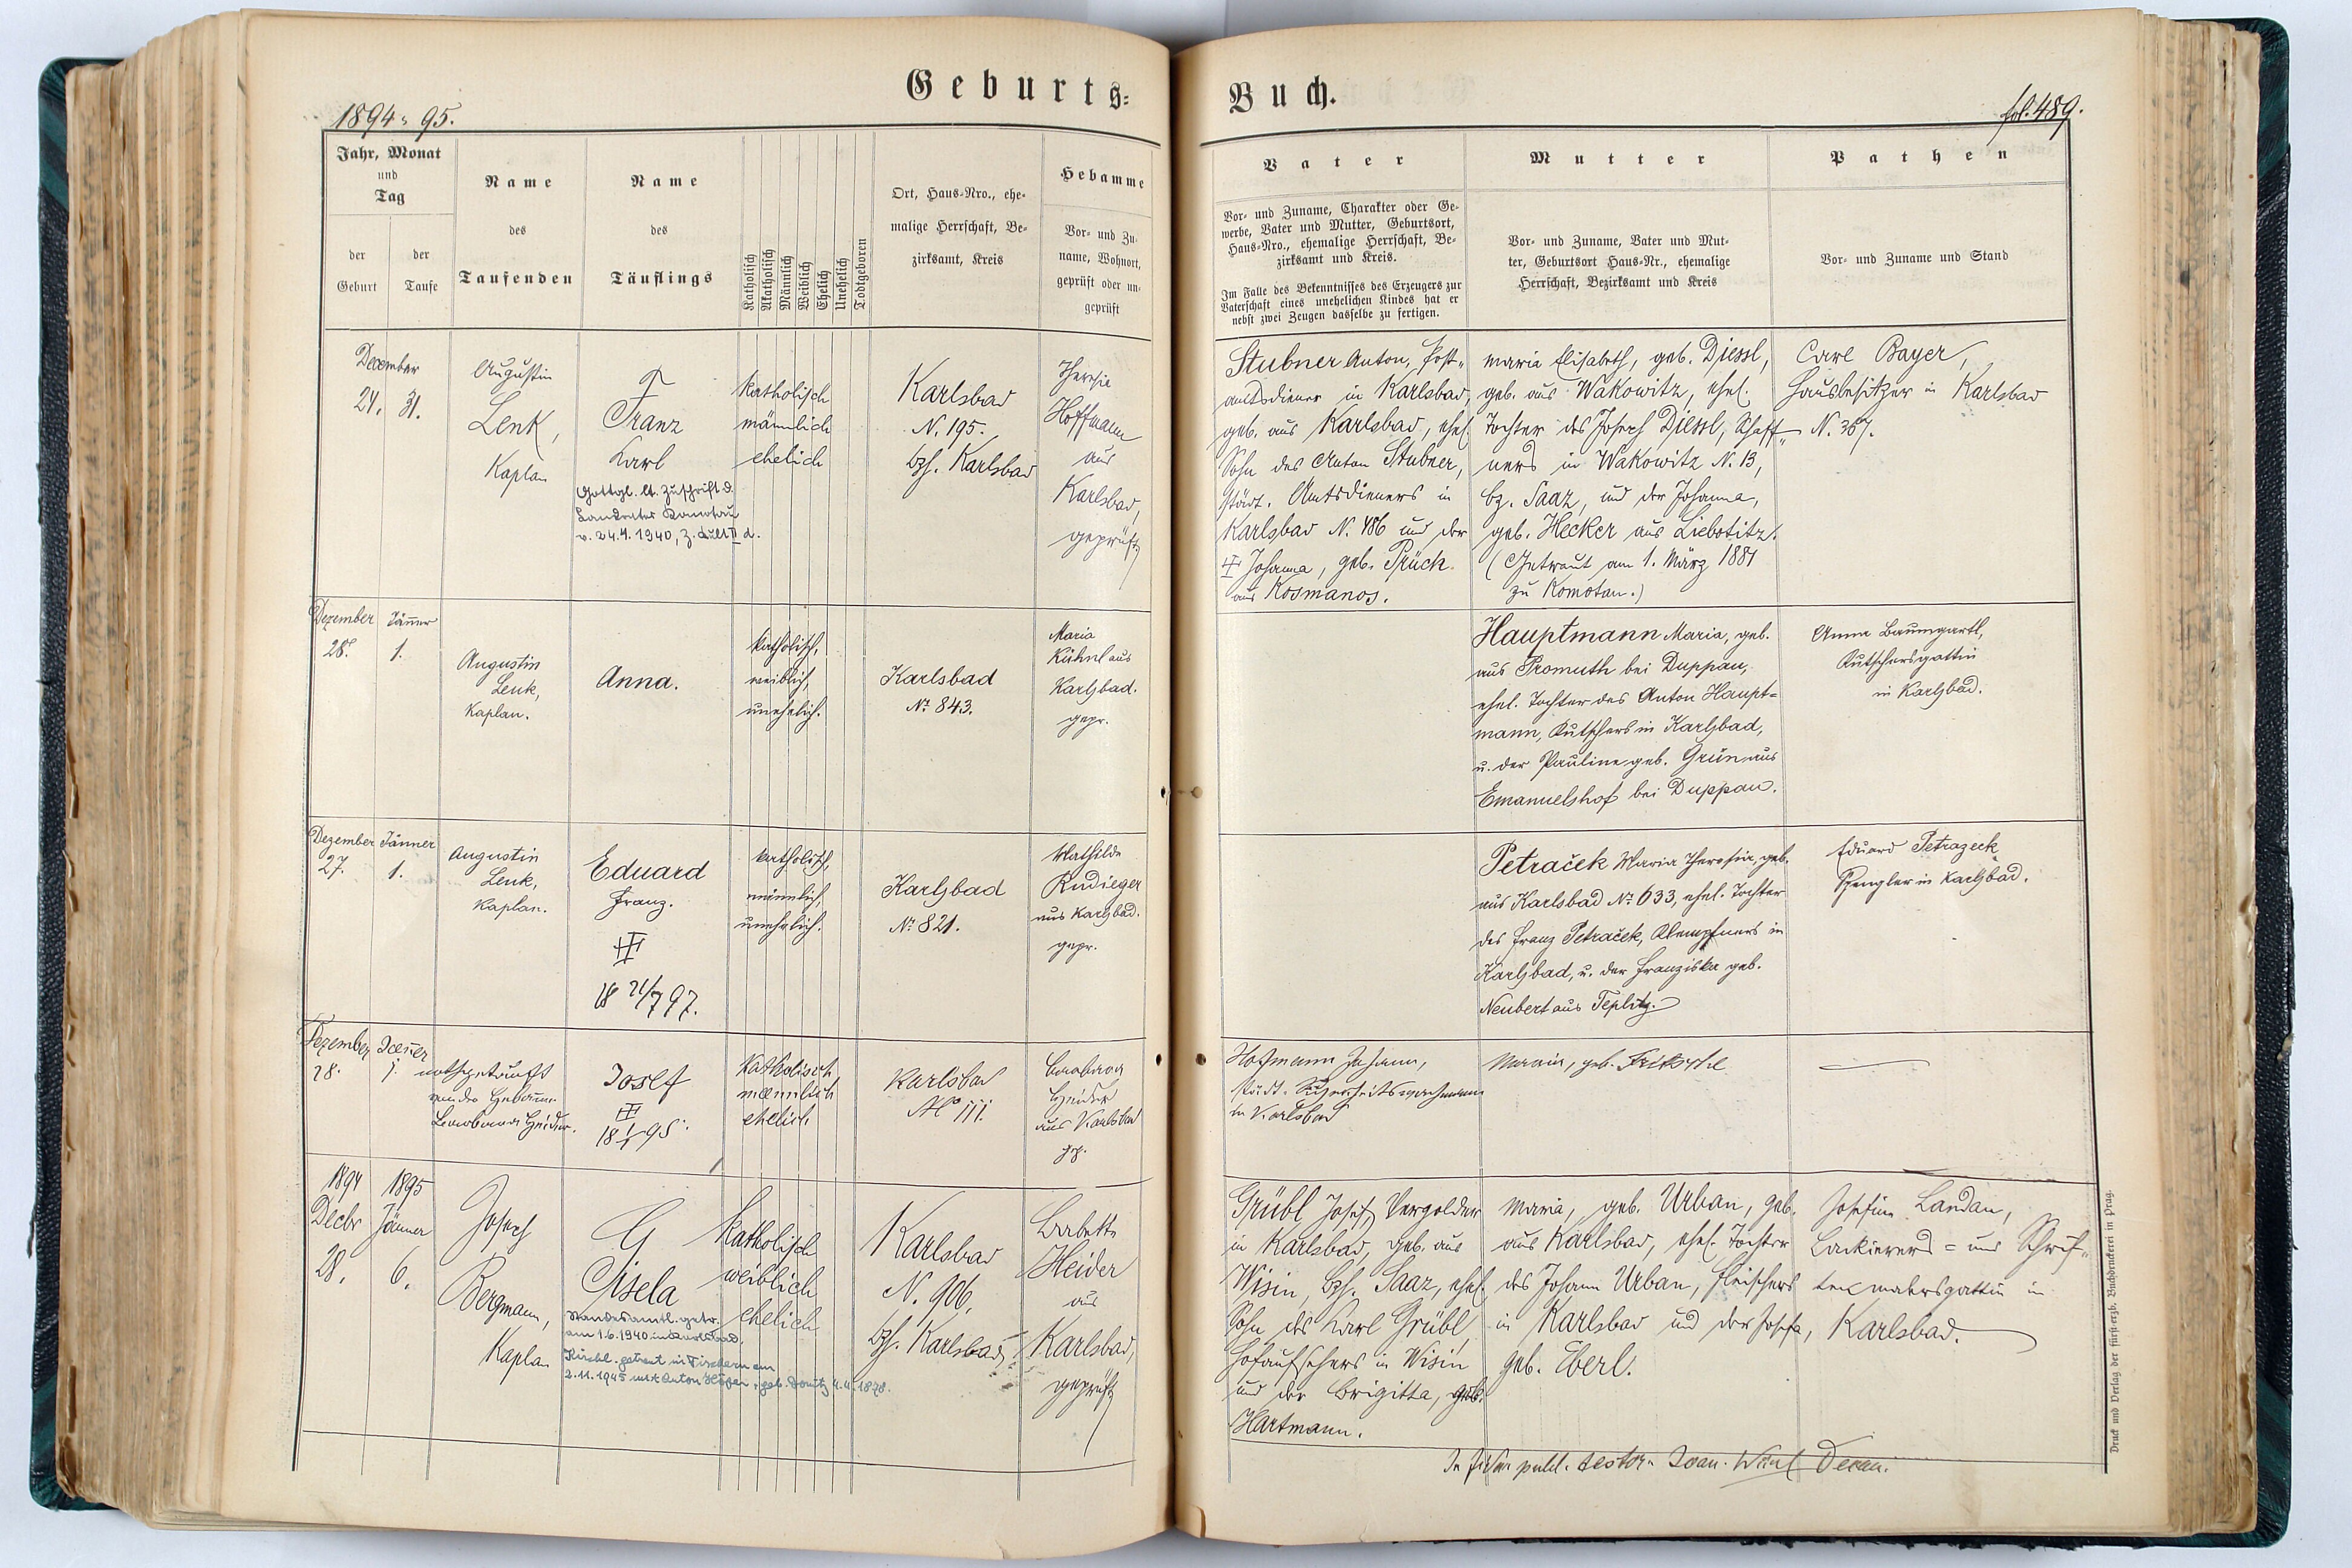 Geburts-
1894-95.
Jahr, Monat
und
Tag
der
Geburt
der
Taufe
Name
des
Taufenden
Name
des
Täuflings
Katholisch
Akatholisch
Männlich
Weiblich
Ehelich
Unehelich
Todtgeboren
Ort, Haus-Nro., ehe-
malige Herrschaft, Be-
zirksamt, Kreis
Hebamme
Vor- und Zu-
name, Wohnort,
geprüft oder un-
geprüft
December
24. 31.
Augustin
Lenk,
Kaplan
Franz
Karl
Gottgl. lt. Zuschrift d.
Landrates Komotau
v. 24.4.1940, Z.
katholisch
männlich
ehelich
Karlsbad
N. 195.
bzh. Karlsbad
Theresie
Hoffmann
aus
Karlsbad,
geprüft
Dezember Jänner
28. 1.
Augustin
Lenk,
Kaplan.
Anna.
katholisch,
weiblich,
unehelich.
Karlsbad
No 843.
Maria
Kühnl aus
Karlsbad.
gepr.
Dezember Jänner
27. 1.
Augustin
Lenk,
Kaplan.
Eduard
Franz.
18 21/7 97.
katholisch,
männlich,
unehelich.
Karlsbad
No 821.
Mathilde
Rudieger
aus Karlsbad.
gepr.
Dezember Jänner
28. 1.
nothgetauft
von der Hebamme
Barbara Heider.
Josef
18 1/1 95.
Katholisch
maennlich
ehelich
Karlsbad
No 111.
Barbara
Heider
aus Karlsbad
gp.
1894 1895
Decbr Jänner
28. 6.
Josef
Bergmann,
Kaplan
Gisela
Standesamtl. getr.
am 1.6.1940 in Karlsbad,
Kirchl. getraut in Fischern am
2.11.1945 mit Anton geb. 4.4.1878.
katholisch
weiblich
ehelich
Karlsbad
N. 906.
bzh. Karlsbad
Barbette
Heider
aus
Karlsbad,
geprüft
Buch.
fol. 489.
Vater
Vor- und Zuname, Charakter oder Ge-
werbe, Vater und Mutter, Geburtsort,
Haus-Nro., ehemalige Herrschaft, Be-
zirksamt und Kreis.
Im Falle des Bekenntnisses des Erzeugers zur
Vaterschaft eines unehelichen Kindes hat er
nebst zwei Zeugen dasselbe zu fertigen.
Mutter
Vor- und Zuname, Vater und Mut-
ter, Geburtsort Haus-Nr., ehemalige
Herrschaft, Bezirksamt und Kreis
Pathen
Vor- und Zuname und Stand
Stubner Anton, Post-
amtsdiener in Karlsbad,
geb. aus Karlsbad, ehel.
Sohn des Anton Stubner,
städt. Amtsdieners in
Karlsbad N. 486 und der
Johanna, geb. Prück
aus Kosmanos.
Maria Elisabeth, geb. Diessl,
geb. aus Wakowitz, ehel.
Tochter des Josef Diessl, Schaff-
ners in Wakowitz N. 13,
bz. Saaz, und der Johanna,
geb. Hecker aus Liebotitz.
(Getraut am 1. März 1881
zu Komotau.)
Carl Bayer,
Hausbesitzer in Karlsbad
N. 367.
Hauptmann Maria, geb.
aus Promuth bei Duppau,
ehel. Tochter des Anton Haupt=
mann, Kutschers in Karlsbad,
u. der Pauline geb. Grün aus
Emanuelshof bei Duppau.
Anna Baumgartl,
Kutschersgattin
in Karlsbad.
Petraček Maria Theresia, geb.
aus Karlsbad No 633, ehel. Tochter
des Franz Petraček, Klempfners in
Karlsbad, u. der Franziska geb.
Neubert aus Teplitz.
Eduard Petrazeck
Spengler in Karlsbad.
Hofmann Johann,
städt. Sicherheitswachmann
in Karlsbad
Maria, geb.
Grübl Josef, Vergolder
in Karlsbad, geb. aus
Wisin, bzh. Saaz, ehel.
Sohn des Karl Grübl,
Hofaufsehers in Wisin
und der Brigitta, geb.
Hartmann.
Maria, geb. Urban, geb.
aus Karlsbad, ehel. Tochter
des Johann Urban, Fleischers
in Karlsbad und der Josefa,
geb. Eberl.
Josefine Landau,
Lackierers= und Schrif-
tenmalersgattin in
Karlsbad.
In fidem publ. testor. Joan. Decan.
Druck und Verlag der fürst-erzb. Buchdruckerei in Prag.